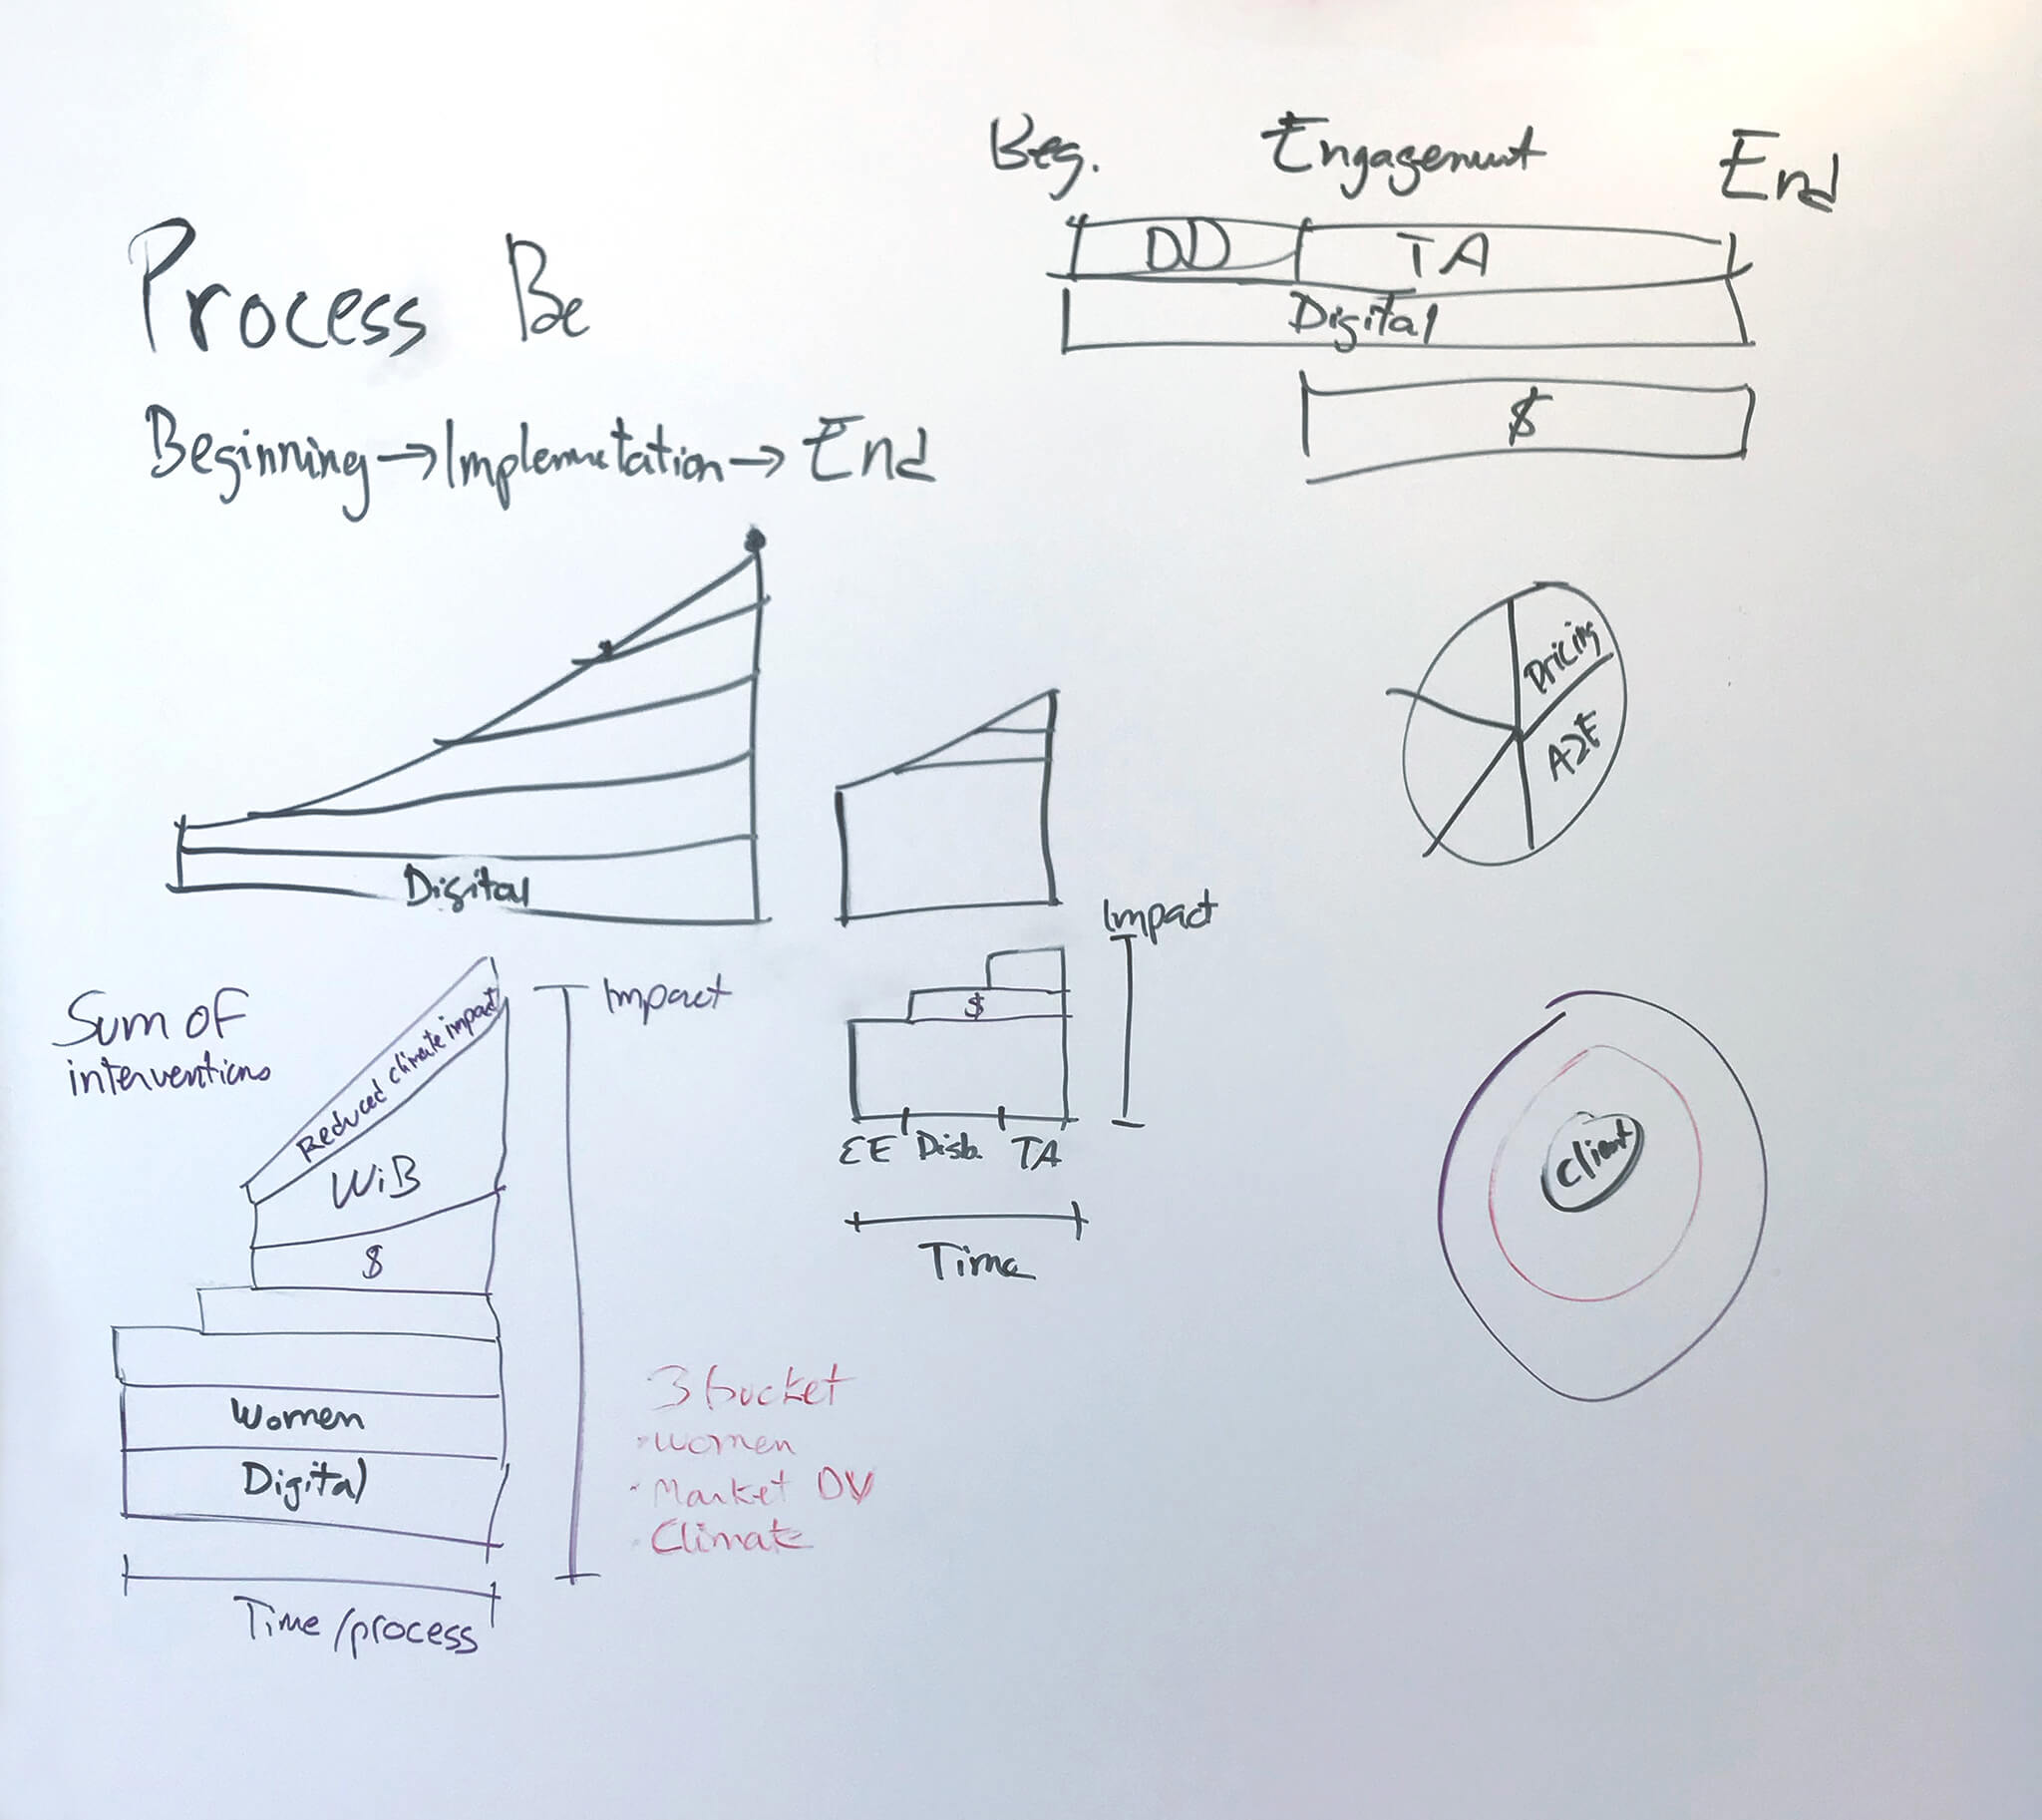 Beg. Engagement End
DD TA
Digital
$
Process Be
Beginning → Implementation → End
Digital
Pricing
A2F
Sum of
interventions
Reduced climate impact
WiB
$
Women
Digital
Time/process
Impact
Impact
$
EE Disb. TA
Time
3 bucket
· women
· Market DV
· Climate
Client